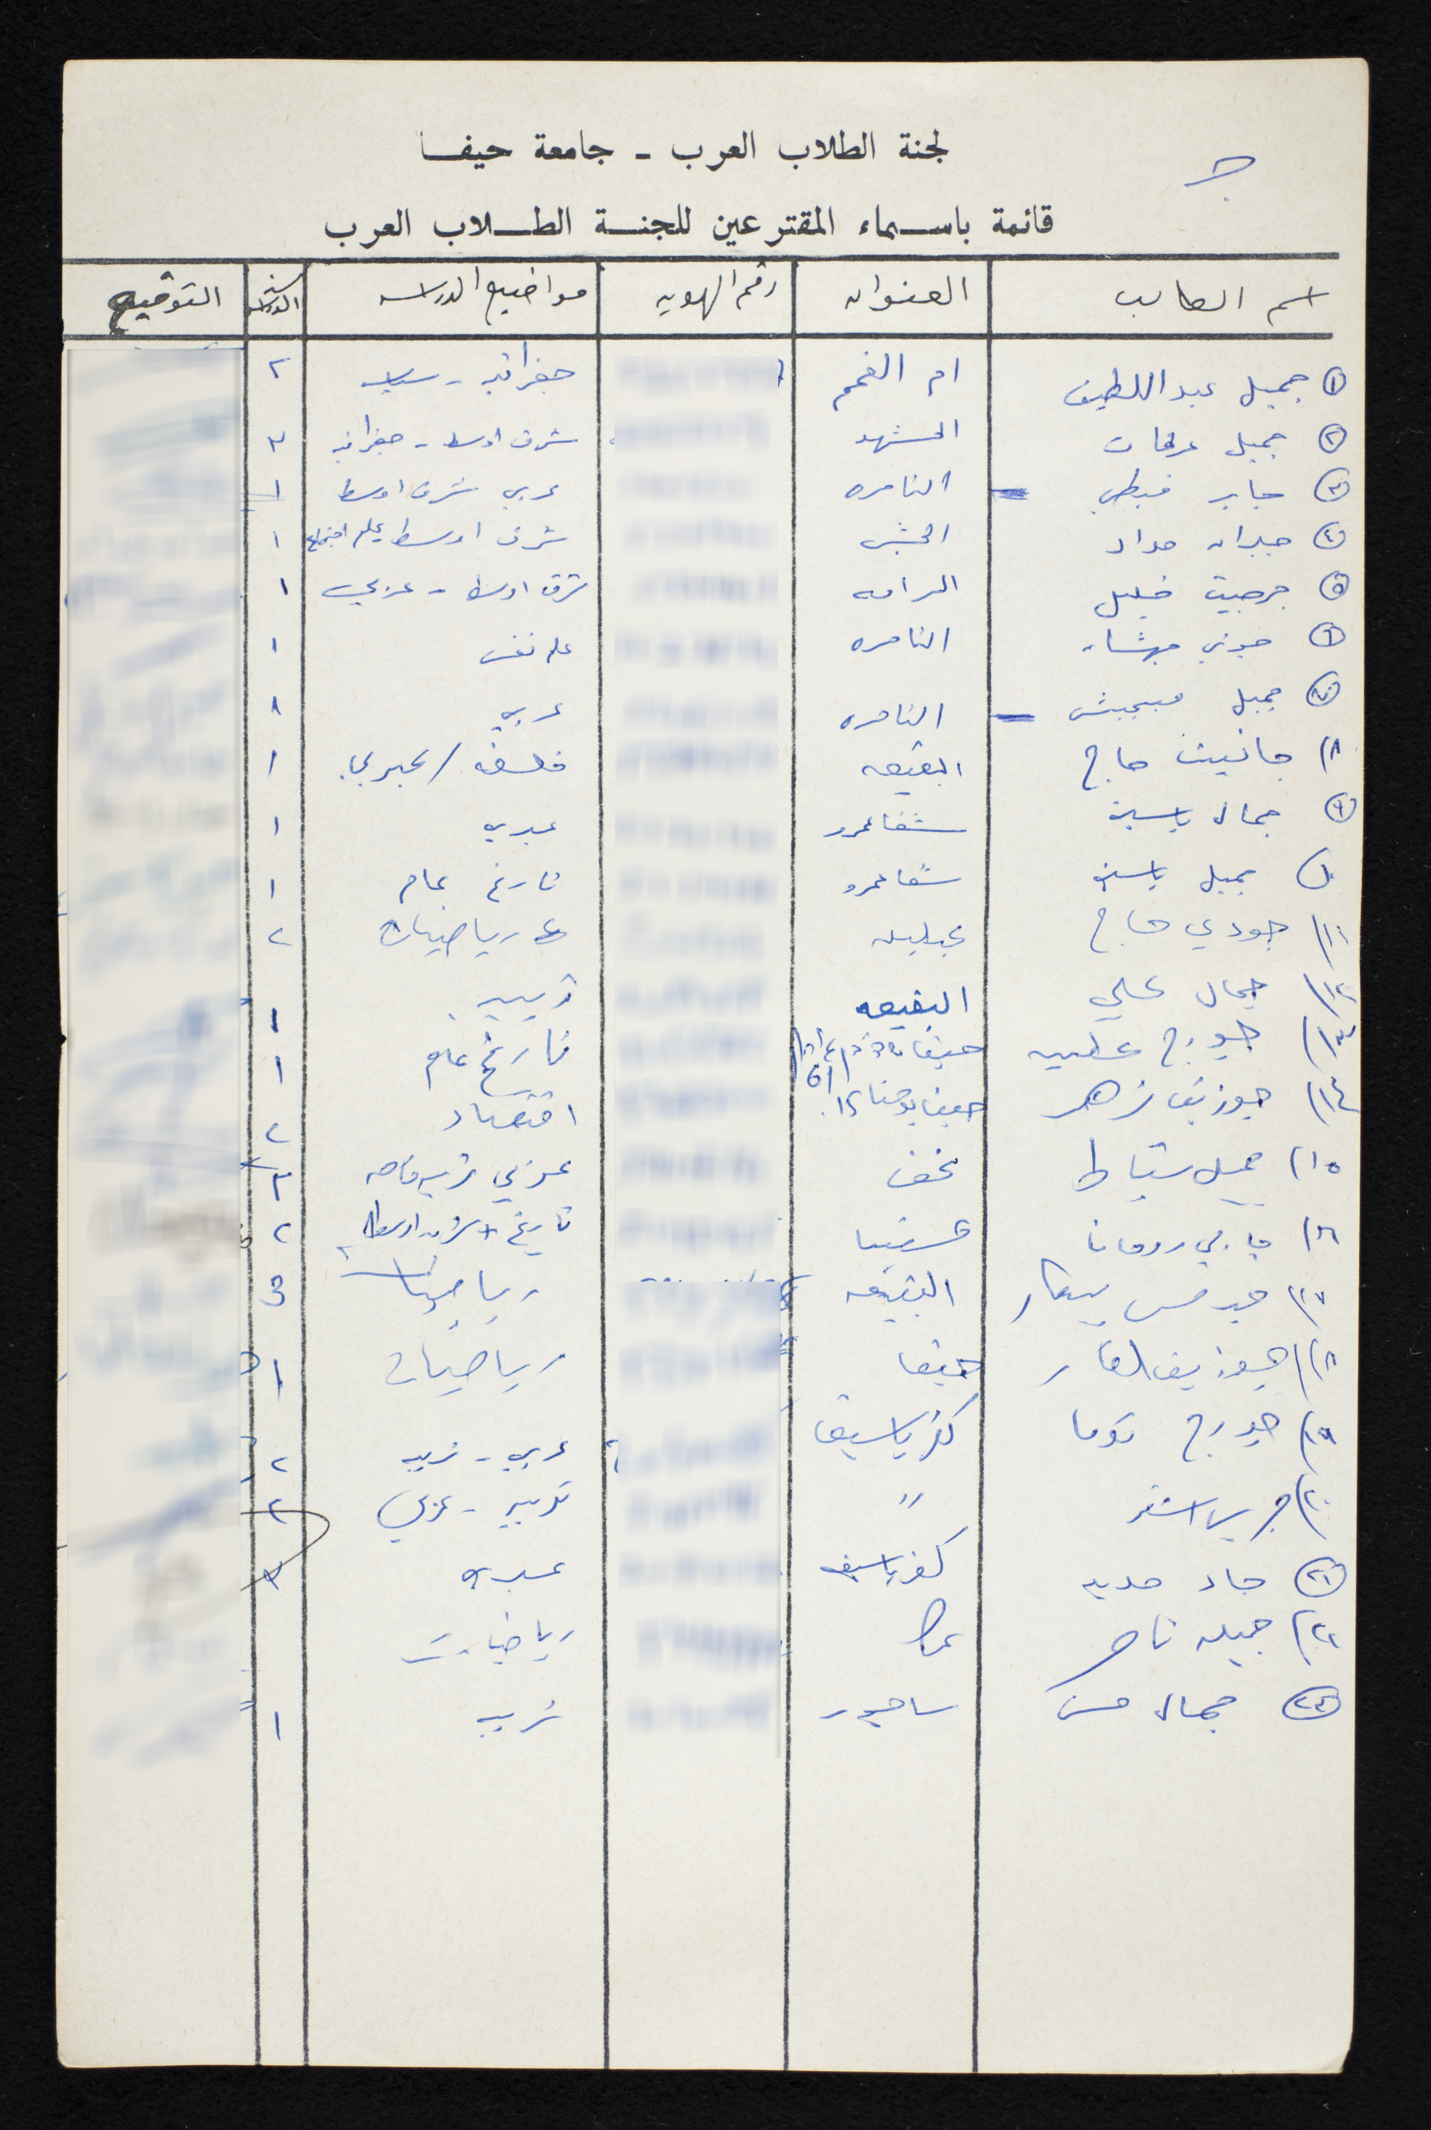 ج
لجنة الطلاب العرب - جامعة حيفا
قائمة باسماء المقترعين للجنة الطلاب العرب
اسم الطالب العنوان رقم الهويه مواضيع الدراسه سنة الدراسه التوقيع
١ جميل عبد اللطيف ام الفحم جغرافيه - ٢
٢ جميل عرفات المشهد شرق اوسط - جغرافيه ٣
٣ جابر قبطي الناصره عربي شرق اوسط ١
٤ جبران حداد الجش شرق اوسط علم اجتماع ١
٥ جرجيت خليل الرامه شرق اوسط - عربي ١
٦ جوني الناصره علم نفس ١
٧ جميل الناصره عربي ١
٨) جانيت حاج البقيعه فلسفه / عبري ١
٩ جمال ياسين شفاعمرو عبري ١
١٠ جميل ياسين شفاعمرو تاريخ عام ١
١١) جودي حاج رياضيات ٢
١٢) جمال علي البقيعه تربيه ١
١٣) جورج حيفا تاريخ عام ١
١٤) جوزيف زهر حيفا يوحنا ١٥ اقتصاد ٢
١٥) جميل شباط نحف عربي تربيه خاصه ٣
١٦) رومانا عسفيا تاريخ + شرق اوسط ٢
١٧) جرمس بيطار البقيعه رياضيات 3
١٨) جوزيف حيفا رياضيات ١
١٩) جورج توما كفرياسيف عربي - تربيه ٢
٢٠) " تربيه - عربي ٢
٢١ جاد كفرياسيف
٢٢) جميله ناصر عكا رياضيات
٢٣ جمال حسن ساجور تربيه ١